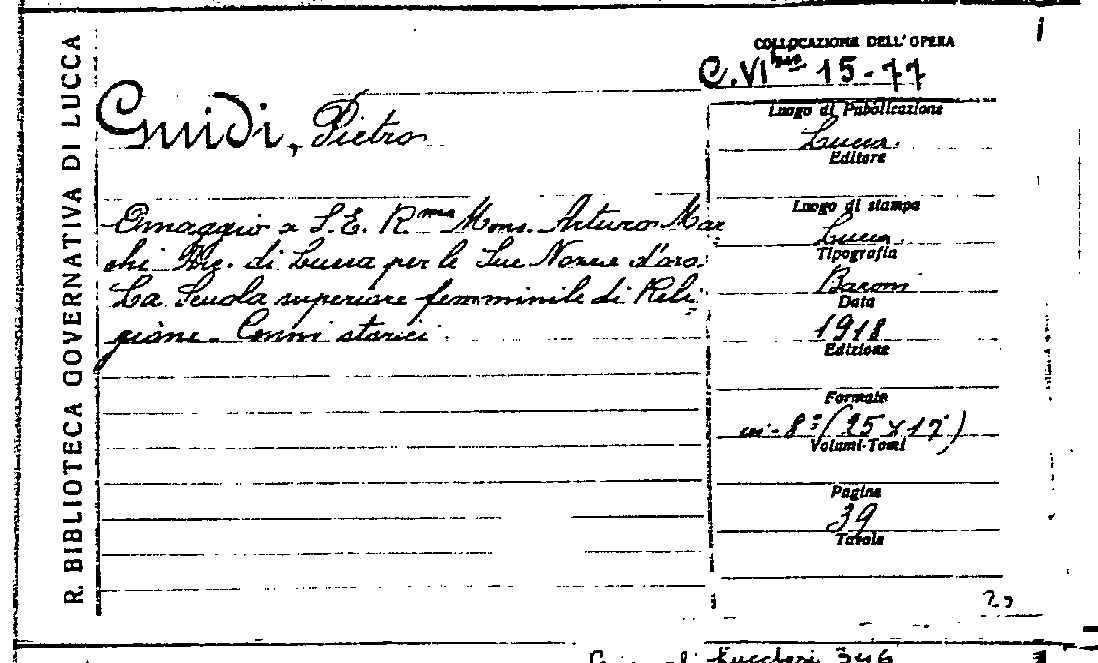 R. BIBLIOTECA GOVERNATIVA DI LUCCA
Guidi, Pietro
Omaggio a S. E. R.ma Mons. Arturo Mar
chi Arc. di Lucca per le Sue Nozze d'oro.
La Scuola superiore femminile di Reli
gione. Cenni storici.
COLLOCAZIONE DELL'OPERA
C. VI 15-77
Luogo di Pubblicazione
Lucca.
Editore
Luogo di stampa
Lucca
Tipografia
Baroni
Data
1918
Edizione
Formato
in-8° (25 x 17)
Volumi-Tomi
Pagine
39
Tavole
346